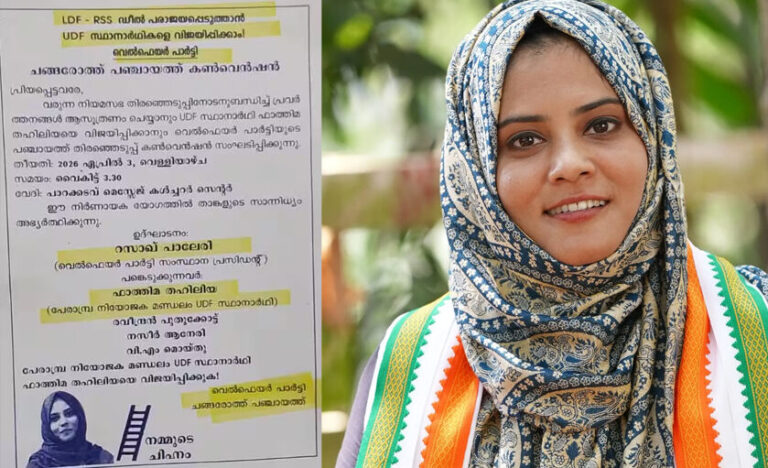 LDF - RSS ഡീൽ പരാജയപ്പെടുത്താൻ
UDF സ്ഥാനാർഥികളെ വിജയിപ്പിക്കാം!
വെൽഫെയർ പാർട്ടി
ചങ്ങരോത്ത് പഞ്ചായത്ത് കൺവെൻഷൻ
പ്രിയപ്പെട്ടവരേ,
വരുന്ന നിയമസഭ തിരഞ്ഞെടുപ്പിനോടനുബന്ധിച്ച് പ്രവർ
ത്തനങ്ങൾ ആസൂത്രണം ചെയ്യാനും UDF സ്ഥാനാർത്ഥി ഫാത്തിമ
തഹിലിയയെ വിജയിപ്പിക്കാനും വെൽഫെയർ പാർട്ടിയുടെ
പഞ്ചായത്ത് തിരഞ്ഞെടുപ്പ് കൺവെൻഷൻ സംഘടിപ്പിക്കുന്നു.
തീയതി: 2026 ഏപ്രിൽ 3, വെള്ളിയാഴ്ച
സമയം: വൈകിട്ട് 3.30
വേദി: പാറക്കടവ് മെസ്സേജ് കൾച്ചറർ സെന്റർ
ഈ നിർണായക യോഗത്തിൽ താങ്കളുടെ സാന്നിധ്യം
അഭ്യർത്ഥിക്കുന്നു.
ഉദ്ഘാടനം:
റസാഖ് പാലേരി
(വെൽഫെയർ പാർട്ടി സംസ്ഥാന പ്രസിഡന്റ്)
പങ്കെടുക്കുന്നവർ:
ഫാത്തിമ തഹിലിയ
(പേരാമ്പ്ര നിയോജക മണ്ഡലം UDF സ്ഥാനാർഥി)
രവീന്ദ്രൻ പുതുക്കോട്ട്
നസീർ ആനേരി
വി.എം മൊയ്തു
പേരാമ്പ്ര നിയോജക മണ്ഡലം UDF സ്ഥാനാർഥി
ഫാത്തിമ തഹിലിയയെ വിജയിപ്പിക്കുക!
വെൽഫെയർ പാർട്ടി
ചങ്ങരോത്ത് പഞ്ചായത്ത്
നമ്മുടെ
ചിഹ്നം